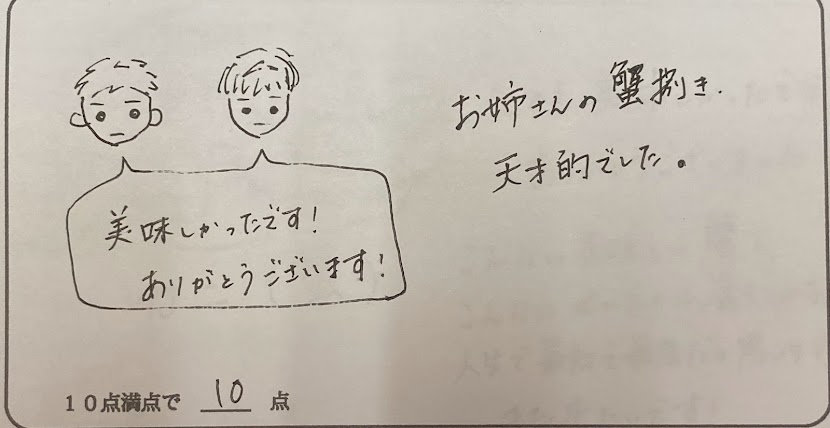 お姉さんの蟹捌き、
天才的でした。
美味しかったです！
ありがとうございます！
10点満点で 10 点